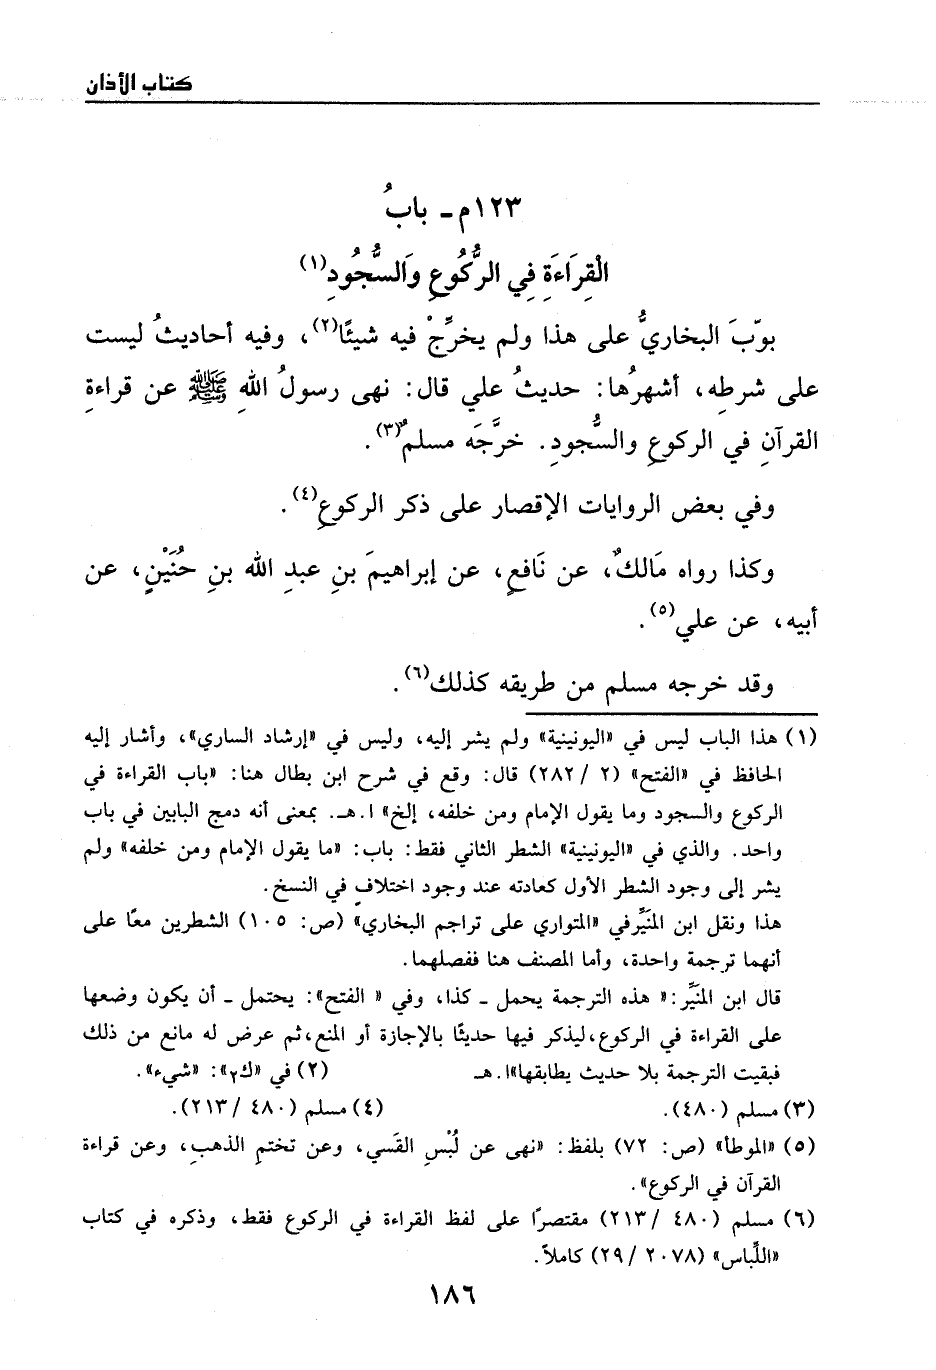 كتاب الأذان
١٢٣م - بابُ
القِرَاءَةِ فِي الرُّكُوعِ وَالسُّجُودِ(١)
بوّبَ البخاريُّ على هذا ولم يخرِّجْ فيه شيئًا(٢)، وفيه أحاديثُ ليست
على شرطِه، أشهرُها: حديثُ علي قال: نهى رسولُ اللهِ ﷺ عن قراءةِ
القرآنِ في الركوعِ والسُّجودِ. خرَّجَه مسلمٌ(٣).
وفي بعض الروايات الإقصار على ذكر الركوعِ(٤).
وكذا رواه مَالكٌ، عن نَافعٍ، عن إبراهيمَ بنِ عبدِ الله بنِ حُنَيْنٍ، عن
أبيه، عن علي(٥).
وقد خرجه مسلم من طريقه كذلك(٦).
(١) هذا الباب ليس في «اليونينية» ولم يشر إليه، وليس في «إرشاد الساري»، وأشار إليه
الحافظ في «الفتح» (٢ / ٢٨٢) قال: وقع في شرح ابن بطال هنا: «باب القراءة في
الركوع والسجود وما يقول الإمام ومن خلفه، إلخ» ا.هـ. بمعنى أنه دمج البابين في باب
واحد. والذي في «اليونينية» الشطر الثاني فقط: باب: «ما يقول الإمام ومن خلفه» ولم
يشر إلى وجود الشطر الأول كعادته عند وجود اختلافٍ في النسخ.
هذا ونقل ابن المنَيِّر في «المتواري على تراجم البخاري» (ص: ١٠٥) الشطرين معًا على
أنهما ترجمة واحدة، وأما المصنف هنا ففصلهما.
قال ابن المنَيِّر: « هذه الترجمة يحمل ـ كذا، وفي « الفتح»: يحتمل ـ أن يكون وضعها
على القراءة في الركوع، ليذكر فيها حديثًا بالإجازة أو المنع، ثم عرض له مانع من ذلك
فبقيت الترجمة بلا حديث يطابقها»ا.هـ (٢) في «ك٢»: «شيء».
(٣) مسلم (٤٨٠). (٤) مسلم (٤٨٠ /٢١٣).
(٥) «الموطأ» (ص: ٧٢) بلفظ: «نهى عن لُبْسِ القَسي، وعن تختمِ الذهبِ، وعن قراءة
القرآن في الركوع».
(٦) مسلم (٤٨٠ /٢١٣) مقتصرًا على لفظ القراءة في الركوع فقط، وذكره في كتاب
«اللِّباس» (٢٠٧٨ /٢٩) كاملاً.
١٨٦